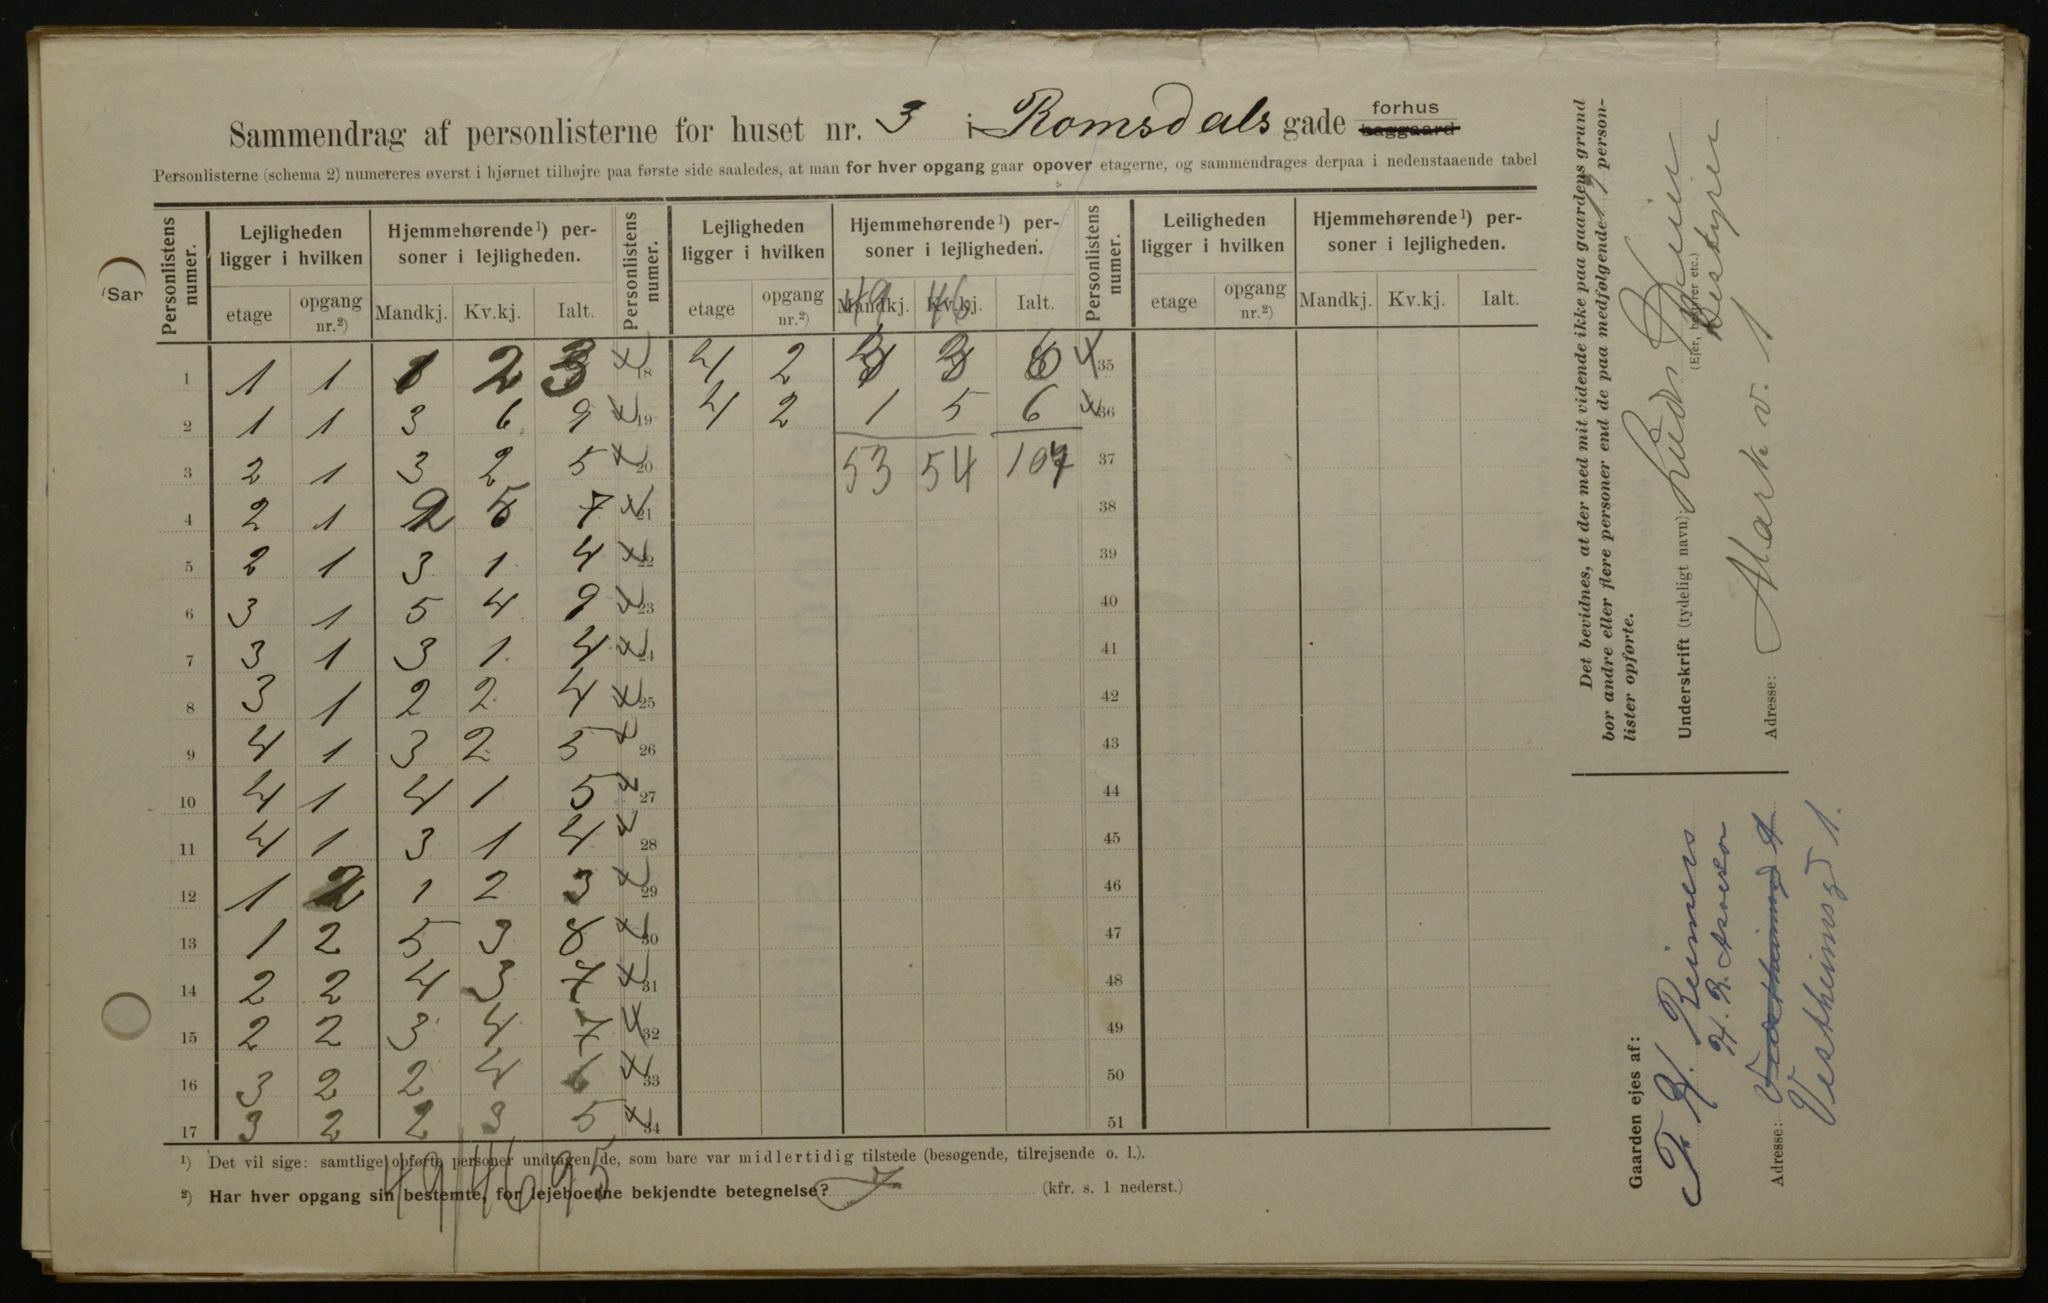 Sammendrag af personlisterne for huset nr. 3 i Romsdals gade forhus baggaard
Personlisterne (schema 2) numereres øverst i hjørnet tilhøjre paa første side saaledes, at man for hver opgang gaar opover etagerne, og sammendrages derpaa i nedenstaaende tabel
Personlistens numer. Lejligheden ligger i hvilken Hjemmehørende¹) personer i lejligheden. Personlistens numer. Lejligheden ligger i hvilken Hjemmehørende¹) personer i lejligheden. Personlistens numer. Leiligheden ligger i hvilken Hjemmehørende¹) personer i lejligheden.
49 46
etage opgang nr.²) Mandkj. Kv.kj. Ialt. etage opgang nr.²) Mandkj. Kv.kj. Ialt. etage opgang nr.²) Mandkj. Kv.kj. Ialt.
1 1 1 1 2 3 18 4 2 3 3 6 35
2 1 1 3 6 9 19 4 2 1 5 6 36
3 2 1 3 2 5 20 53 54 107 37
4 2 1 2 5 7 21 38
5 2 1 3 1 4 22 39
6 3 1 5 4 9 23 40
7 3 1 3 1 4 24 41
8 3 1 2 2 4 25 42
9 4 1 3 2 5 26 43
10 4 1 4 1 5 27 44
11 4 1 3 1 4 28 45
12 1 2 1 2 3 29 46
13 1 2 5 3 8 30 47
14 2 2 4 3 7 31 48
15 2 2 3 4 7 32 49
16 3 2 2 4 6 33 50
17 3 2 2 3 5 34 51
49 46 95
¹) Det vil sige: samtlige opførte personer undtagen de, som bare var midlertidig tilstede (besøgende, tilrejsende o. l.).
²) Har hver opgang sin bestemte, for lejeboerne bekjendte betegnelse? (kfr. s. 1 nederst.)
(Sar
Det bevidnes, at der med mit vidende ikke paa gaardens grund
bor andre eller flere personer end de paa medfølgende person-
lister opførte.
Underskrift (tydeligt navn):
(Ejer, bestyrer etc.)
Bestyrer
Adresse: Markv. 1
Gaarden ejes af:
F. H. Reimers
Adresse:
Vestheimsgd 1.